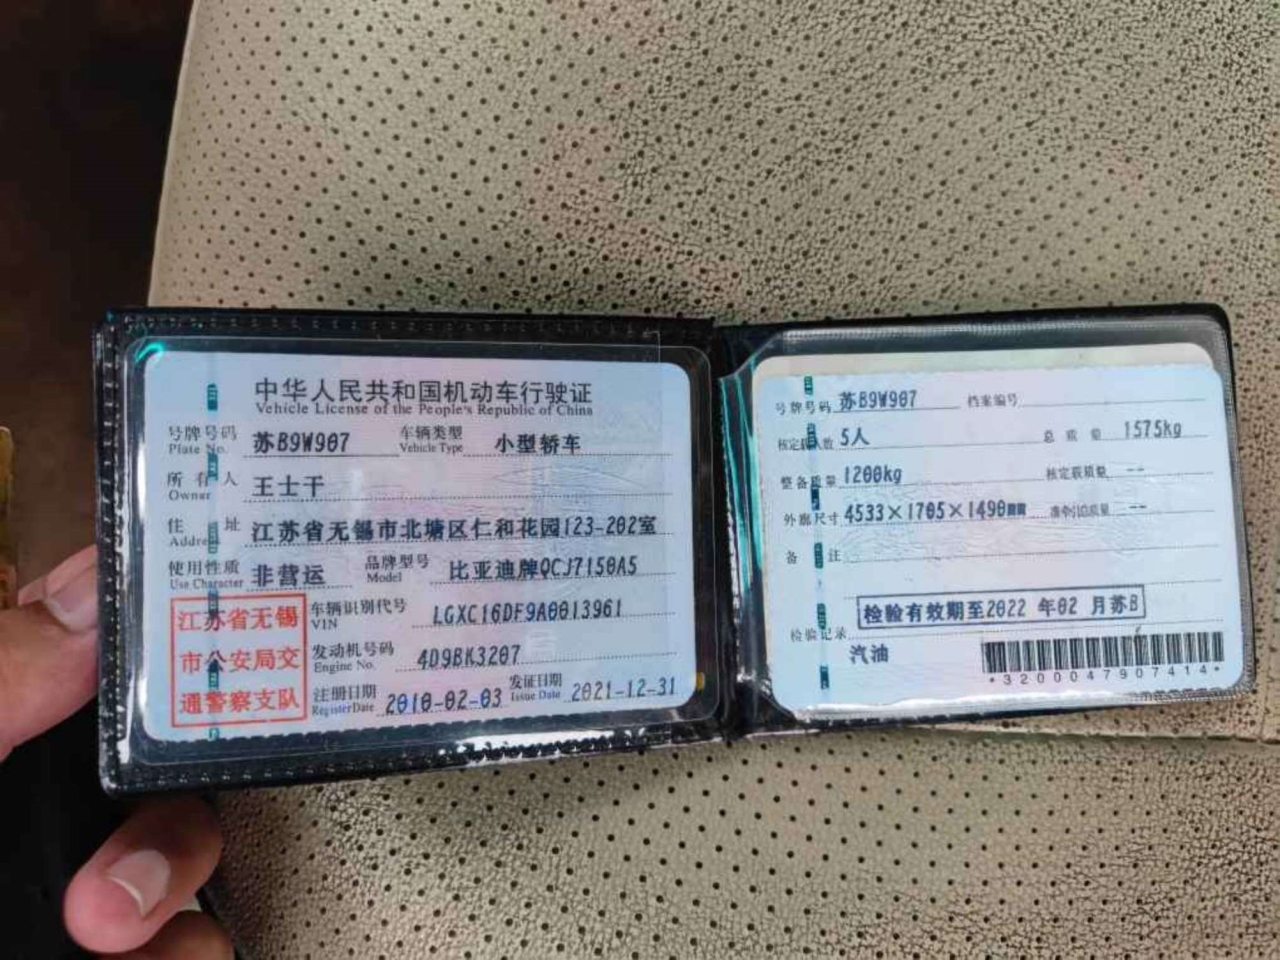 中华人民共和国机动车行驶证
Vehicle License of the People's Republic of China
号牌号码 苏B9W907 车辆类型 小型轿车
Plate No. Vehicle Type
所有人 王士干
Owner
住址 江苏省无锡市北塘区仁和花园123-202室
Address
使用性质 非营运 品牌型号 比亚迪牌QCJ7150A5
Use Character Model
江苏省无锡
市公安局交
通警察支队
车辆识别代号 LGXC16DF9A0013961
VIN
发动机号码 4D9BK3207
Engine No.
注册日期 2010-02-03 发证日期 2021-12-31
Register Date Issue Date
号牌号码 苏B9W907 档案编号
核定载人数 5人 总质量 1575kg
整备质量 1200kg 核定载质量 --
外廓尺寸 4533×1705×1490mm 准牵引总质量 --
备注
检验有效期至2022 年02 月苏B
检验记录
汽油
*3200047907414*